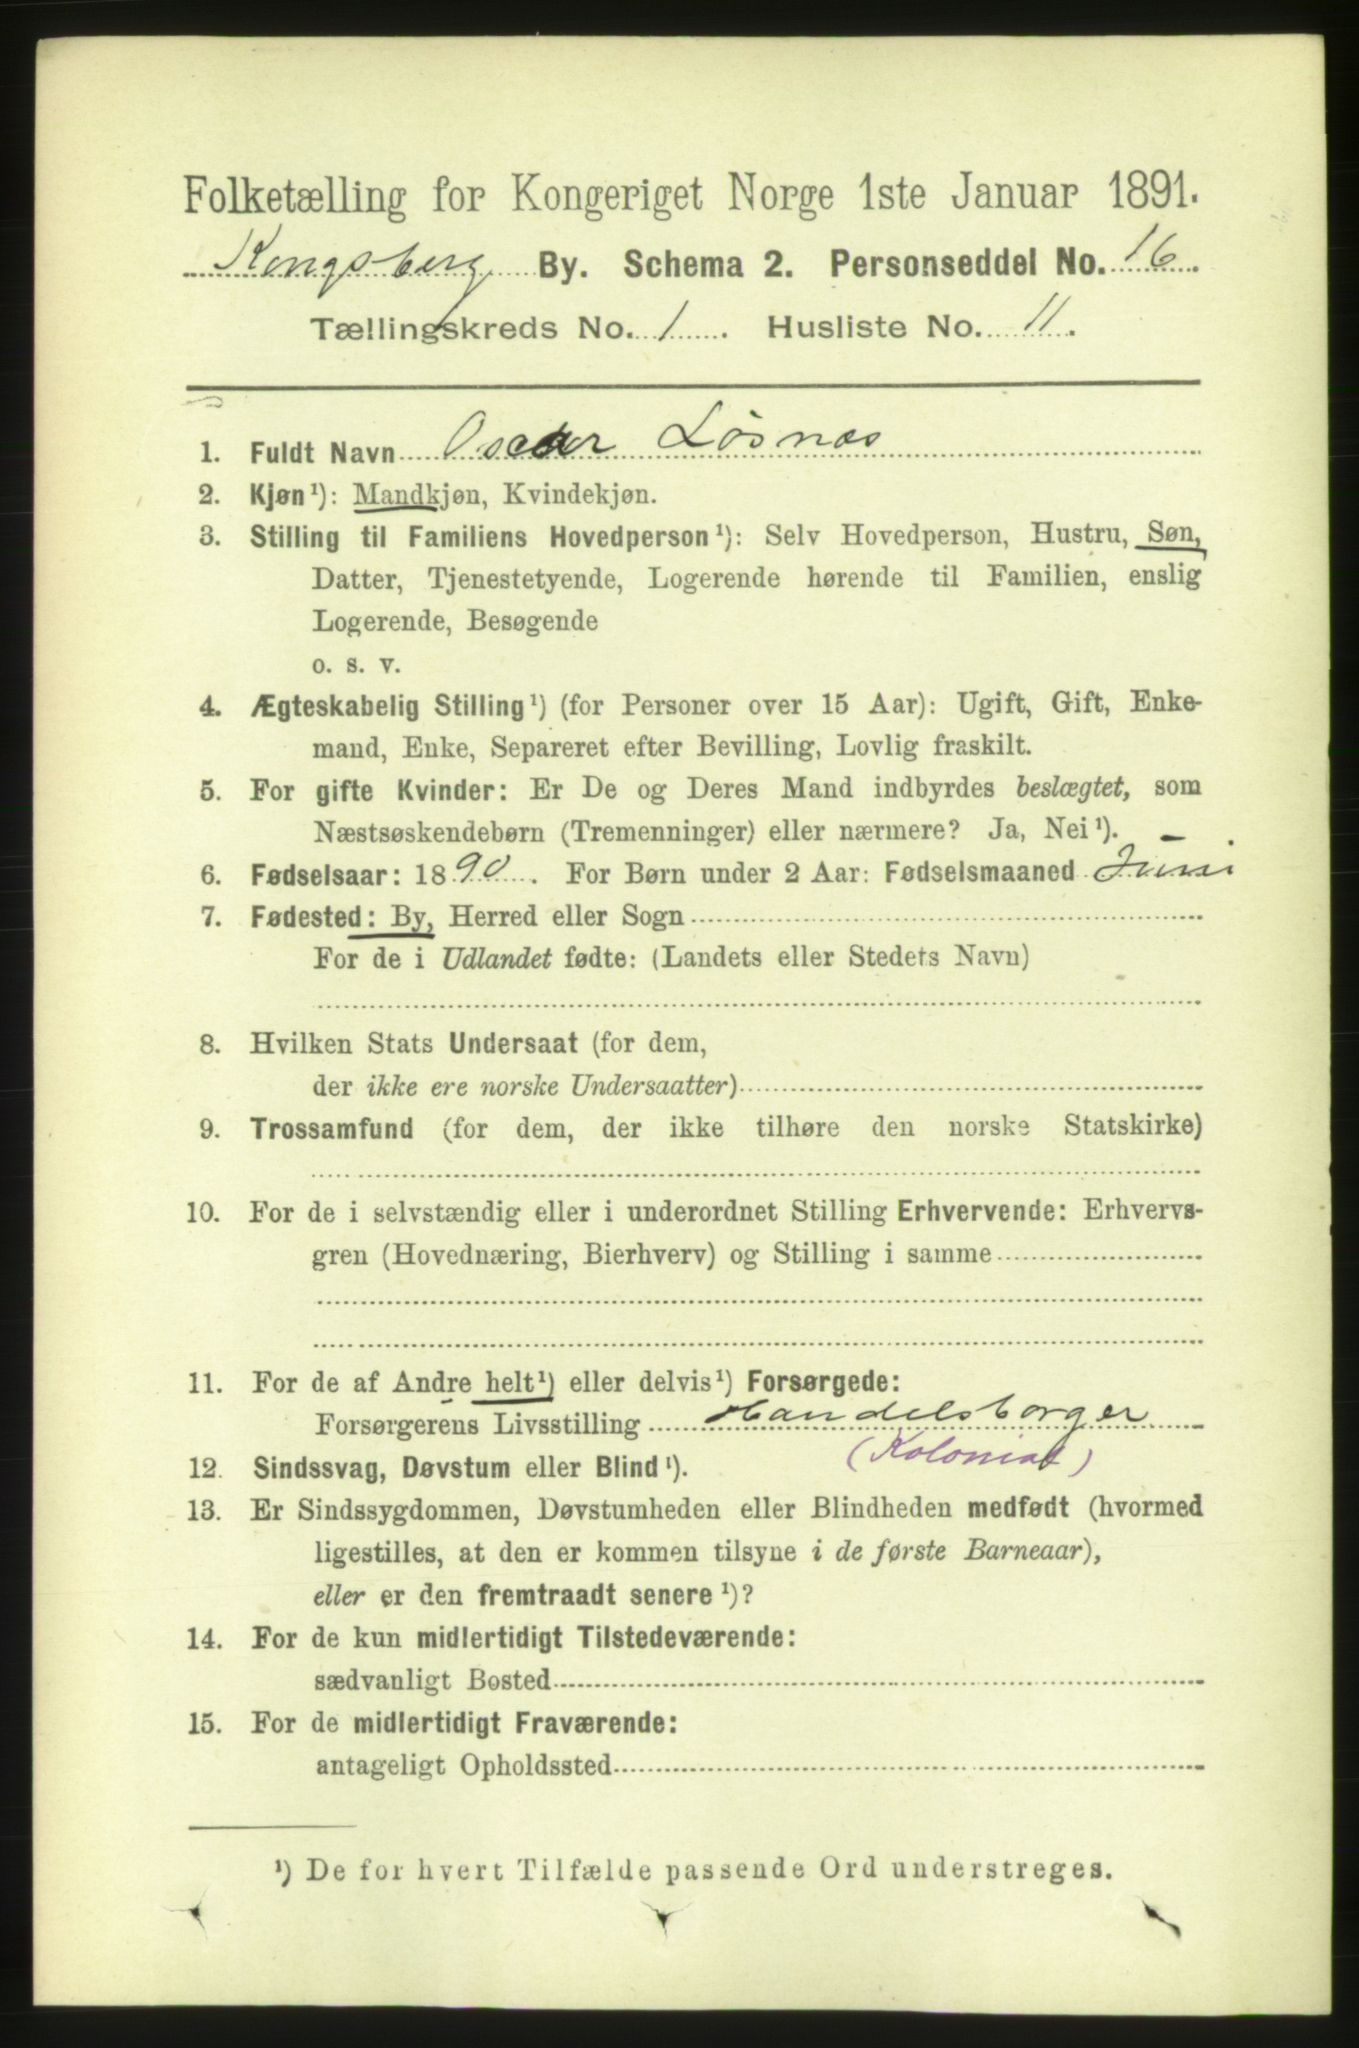 Folketælling for Kongeriget Norge 1ste Januar 1891.
Kongsberg By. Schema 2. Personseddel No. 16.
Tællingskreds No. 1. Husliste No. 11.
1. Fuldt Navn Oscar Løsnæs
2. Kjøn¹): Mandkjøn, Kvindekjøn.
3. Stilling til Familiens Hovedperson¹): Selv Hovedperson, Hustru, Søn,
Datter, Tjenestetyende, Logerende hørende til Familien, enslig
Logerende, Besøgende
o. s. v.
4. Ægteskabelig Stilling¹) (for Personer over 15 Aar): Ugift, Gift, Enke-
mand, Enke, Separeret efter Bevilling, Lovlig fraskilt.
5. For gifte Kvinder: Er De og Deres Mand indbyrdes beslægtet, som
Næstsøskendebørn (Tremenninger) eller nærmere? Ja, Nei¹).
6. Fødselsaar: 1890. For Børn under 2 Aar: Fødselsmaaned Juni
7. Fødested: By, Herred eller Sogn
For de i Udlandet fødte: (Landets eller Stedets Navn)
8. Hvilken Stats Undersaat (for dem,
der ikke ere norske Undersaatter)
9. Trossamfund (for dem, der ikke tilhøre den norske Statskirke)
10. For de i selvstændig eller i underordnet Stilling Erhvervende: Erhvervs-
gren (Hovednæring, Bierhverv) og Stilling i samme
11. For de af Andre helt¹) eller delvis¹) Forsørgede:
Forsørgerens Livsstilling Handelsborger
(Kolonial)
12. Sindssvag, Døvstum eller Blind¹).
13. Er Sindssygdommen, Døvstumheden eller Blindheden medfødt (hvormed
ligestilles, at den er kommen tilsyne i de første Barneaar),
eller er den fremtraadt senere¹)?
14. For de kun midlertidigt Tilstedeværende:
sædvanligt Bosted
15. For de midlertidigt Fraværende:
antageligt Opholdssted
¹) De for hvert Tilfælde passende Ord understreges.